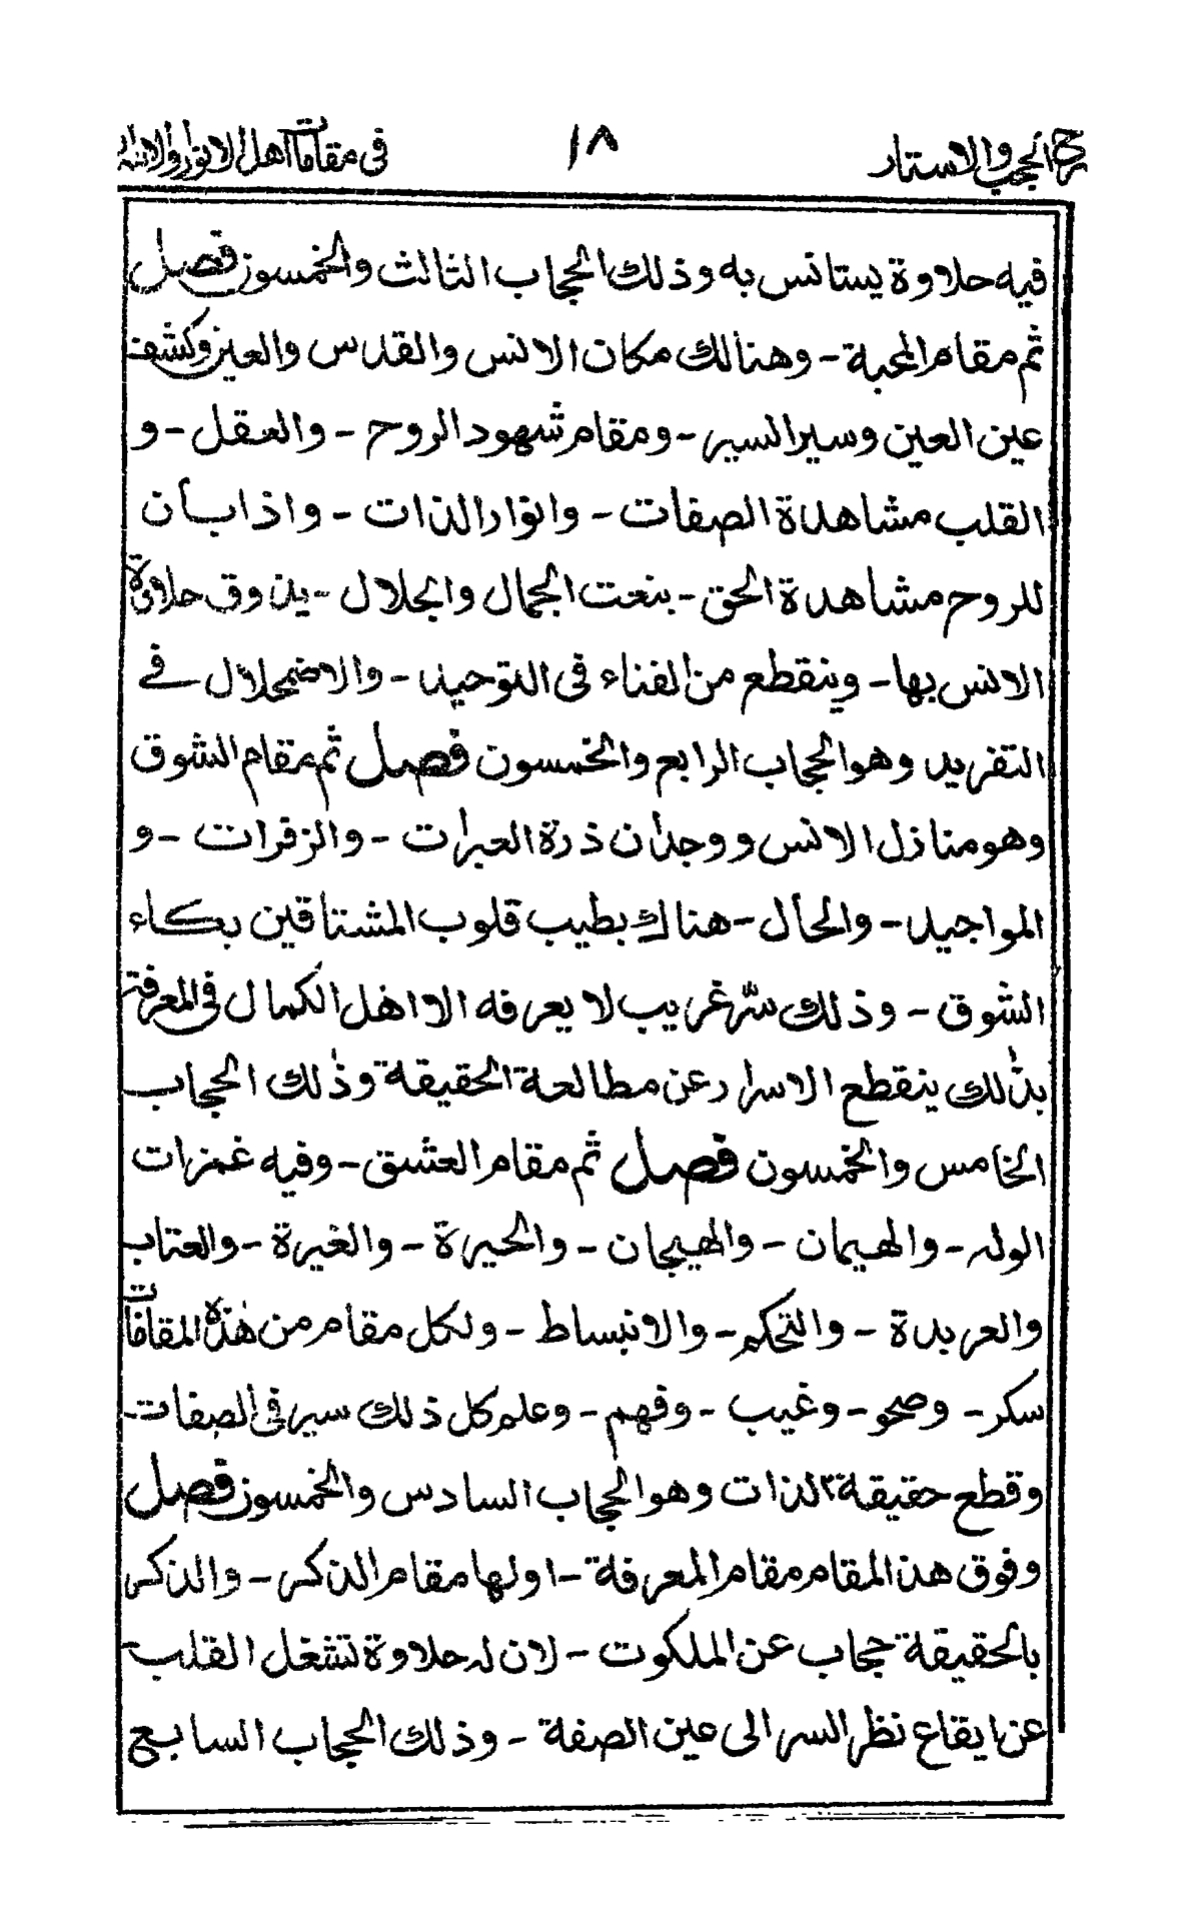 شرح الحجب والاستار ١٨ فى مقامات اهل الانوار والاسرار
فيه حلاوة يستانس به وذلك الحجاب الثالث والخمسون فصل
ثم مقام المحبة - وهنالك مكان الانس والقدس والعين وكشف
عين العين وسير السير - ومقام شهود الروح - والعقل - و
القلب مشاهدة الصفات - وانوار الذات - واذا بان
للروح مشاهدة الحق - بنعت الجمال والجلال - يذوق حلاوة
الانس بها - وينقطع من الفناء فى التوحيد - والاضمحلال فے
التفريد وهو الحجاب الرابع والخمسون فصل ثم مقام الشوق
وهو منازل الانس ووجدان ذرة العبرات - والزفرات - و
المواجيد - والحال - هناك بطيب قلوب المشتاقين بكاء
الشوق - وذلك سرّ غريب لا يعرفه الا اهل الكمال فى المعرفة
بذٰلك ينقطع الاسرار عن مطالعة الحقيقة وذٰلك الحجاب
الخامس والخمسون فصل ثم مقام العشق - وفيه غمزات
الوله - والهيمان - والهيجان - والحيرة - والغيرة - والعتاب
والعربدة - والتحكم - والانبساط - ولكل مقام من هٰذه المقامات
سكر - وصحو - وغيب - وفهم - وعلم كل ذلك سير فى الصفات
وقطع حقيقة الذات وهو الحجاب السادس والخمسون فصل
وفوق هذا المقام مقام المعرفة - اولها مقام الذكر - والذكر
بالحقيقة حجاب عن الملكوت - لان له حلاوة تشغل القلب
عن ايقاع نظر السر الى عين الصفة - وذلك الحجاب السابع